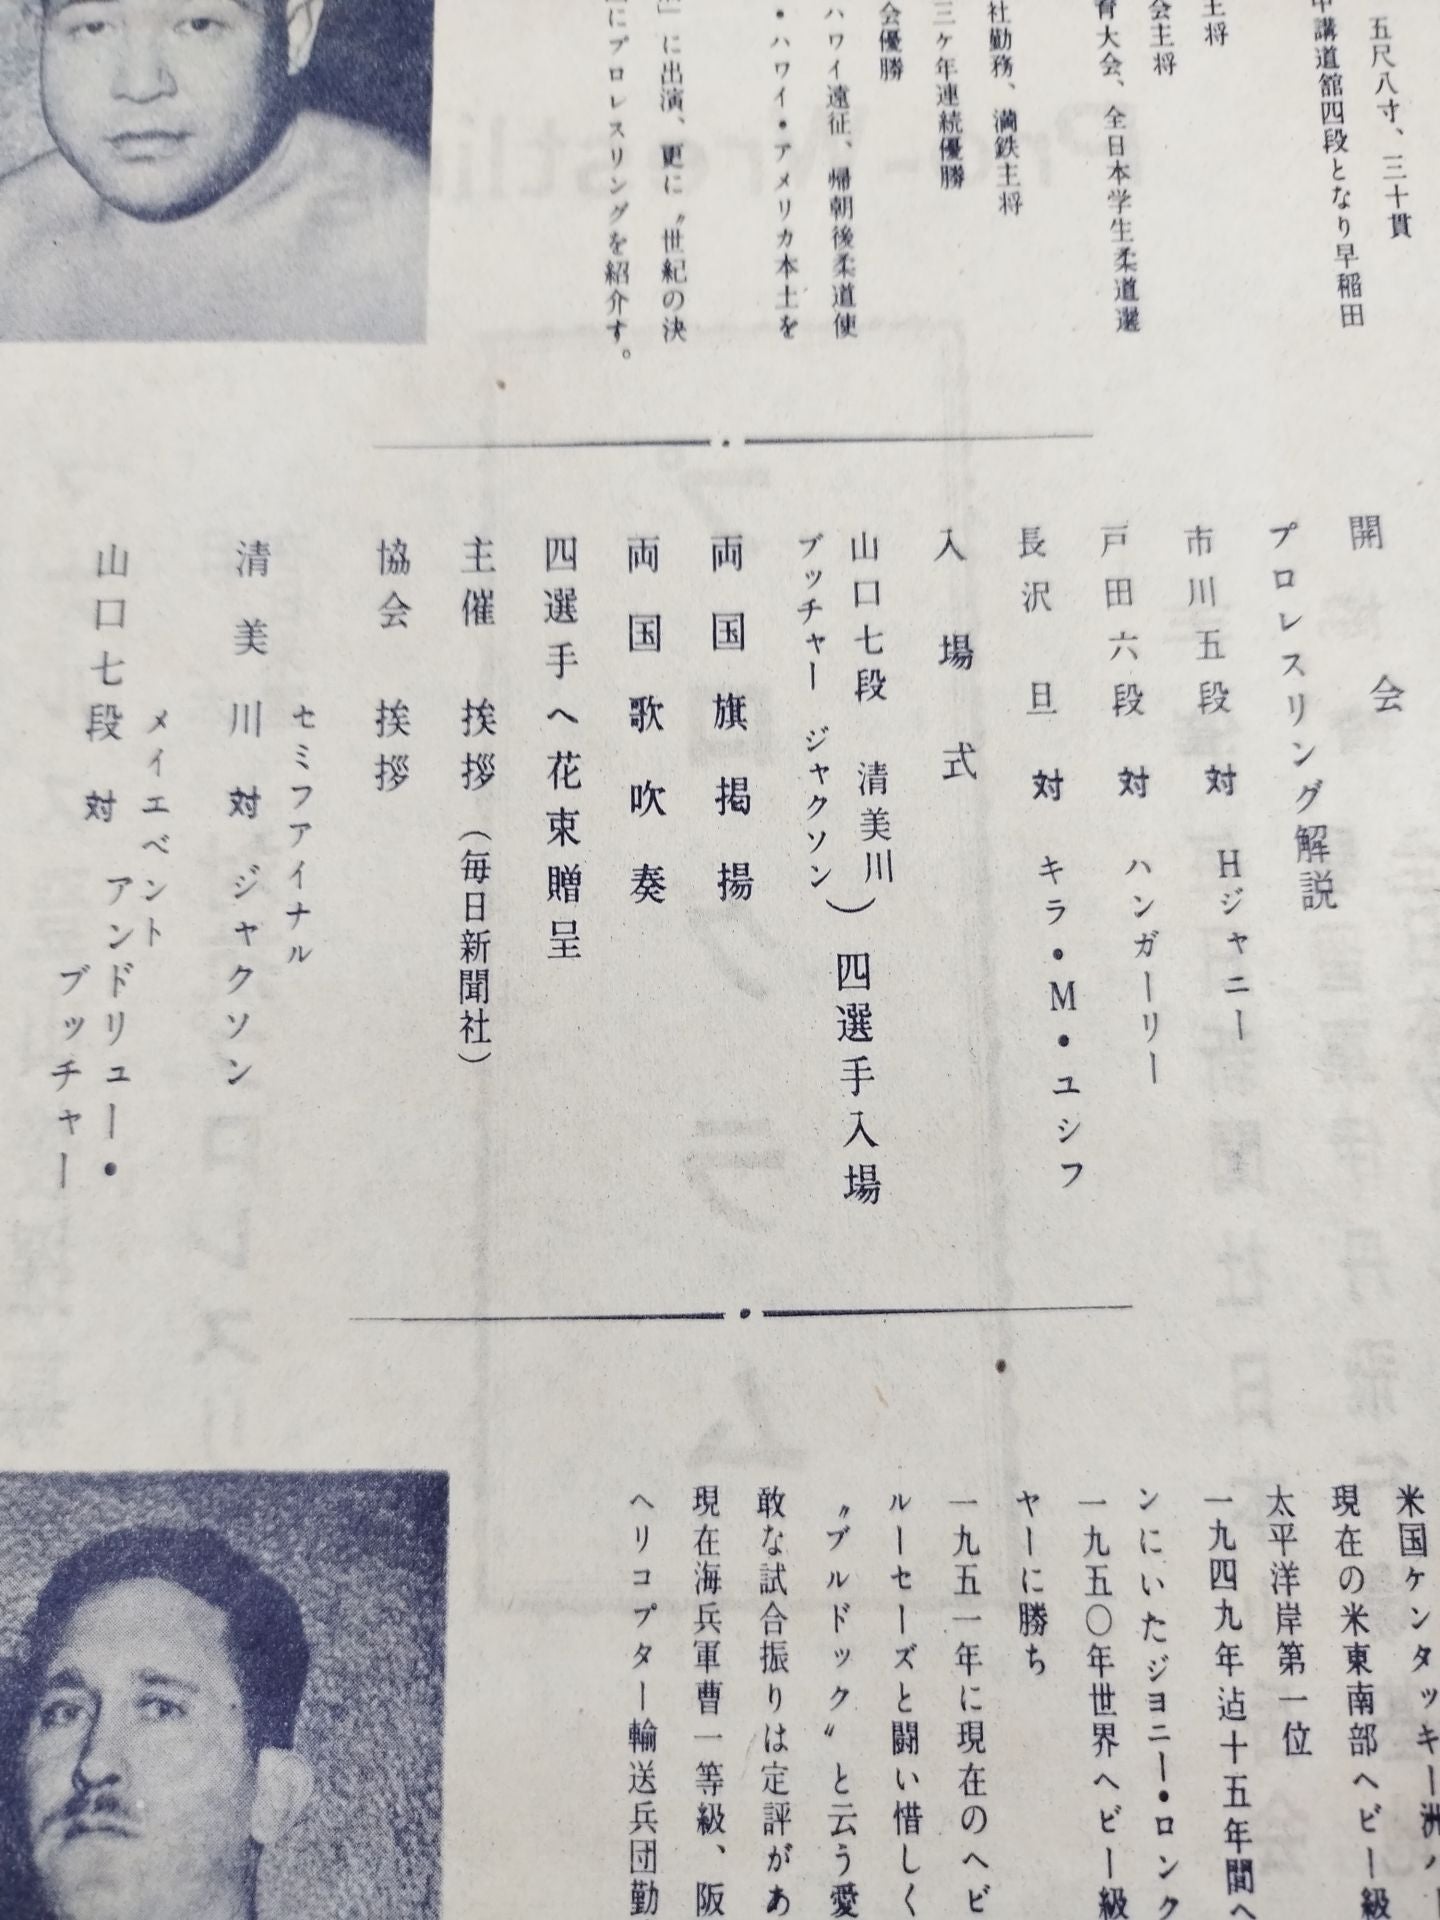 五尺八寸、三十貫
中講道館四段となり早稲田
主将
会主将
育大会、全日本学生柔道選
社勤務、満鉄主将
三ケ年連続優勝
会優勝
ハワイ遠征、帰朝後柔道使
・ハワイ・アメリカ本土を
に出演、更に〝世紀の決
にプロレスリングを紹介す。
開会
プロレスリング解説
市川五段 対 Hジャニー
戸田六段 対 ハンガーリー
長沢旦 対 キラ・M・ユシフ
入場式
山口七段 清美川
ブッチャー ジャクソン
）四選手入場
両国旗掲揚
両国歌吹奏
四選手へ花束贈呈
主催 挨拶（毎日新聞社）
協会 挨拶
セミフアイナル
清美川 対 ジャクソン
メイエベント
山口七段 対 アンドリュー・
ブッチャー
米国ケンタッキー洲
現在の米東南部ヘビー級
太平洋岸第一位
一九四九年迠十五年間ヘ
ンにいたジョニー・ロンク
一九五〇年世界ヘビー級
ャーに勝ち
一九五一年に現在のヘビ
ルーセーズと闘い惜しく
〝ブルドック〟と云う愛
敢な試合振りは定評があ
現在海兵軍曹一等級、阪
ヘリコプター輸送兵団勤